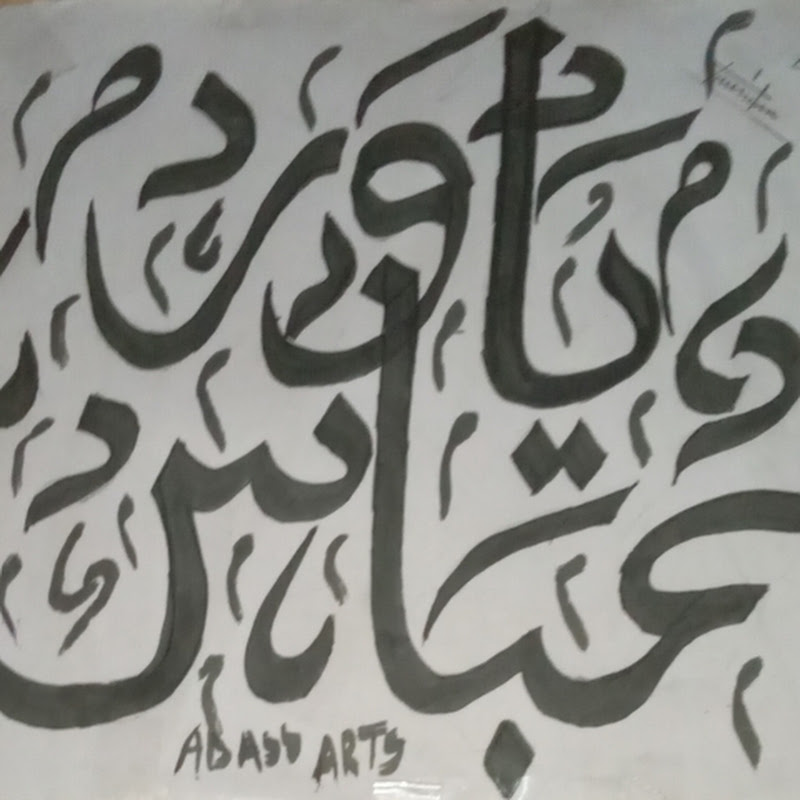 یاور
عباس
ABASS ARTS